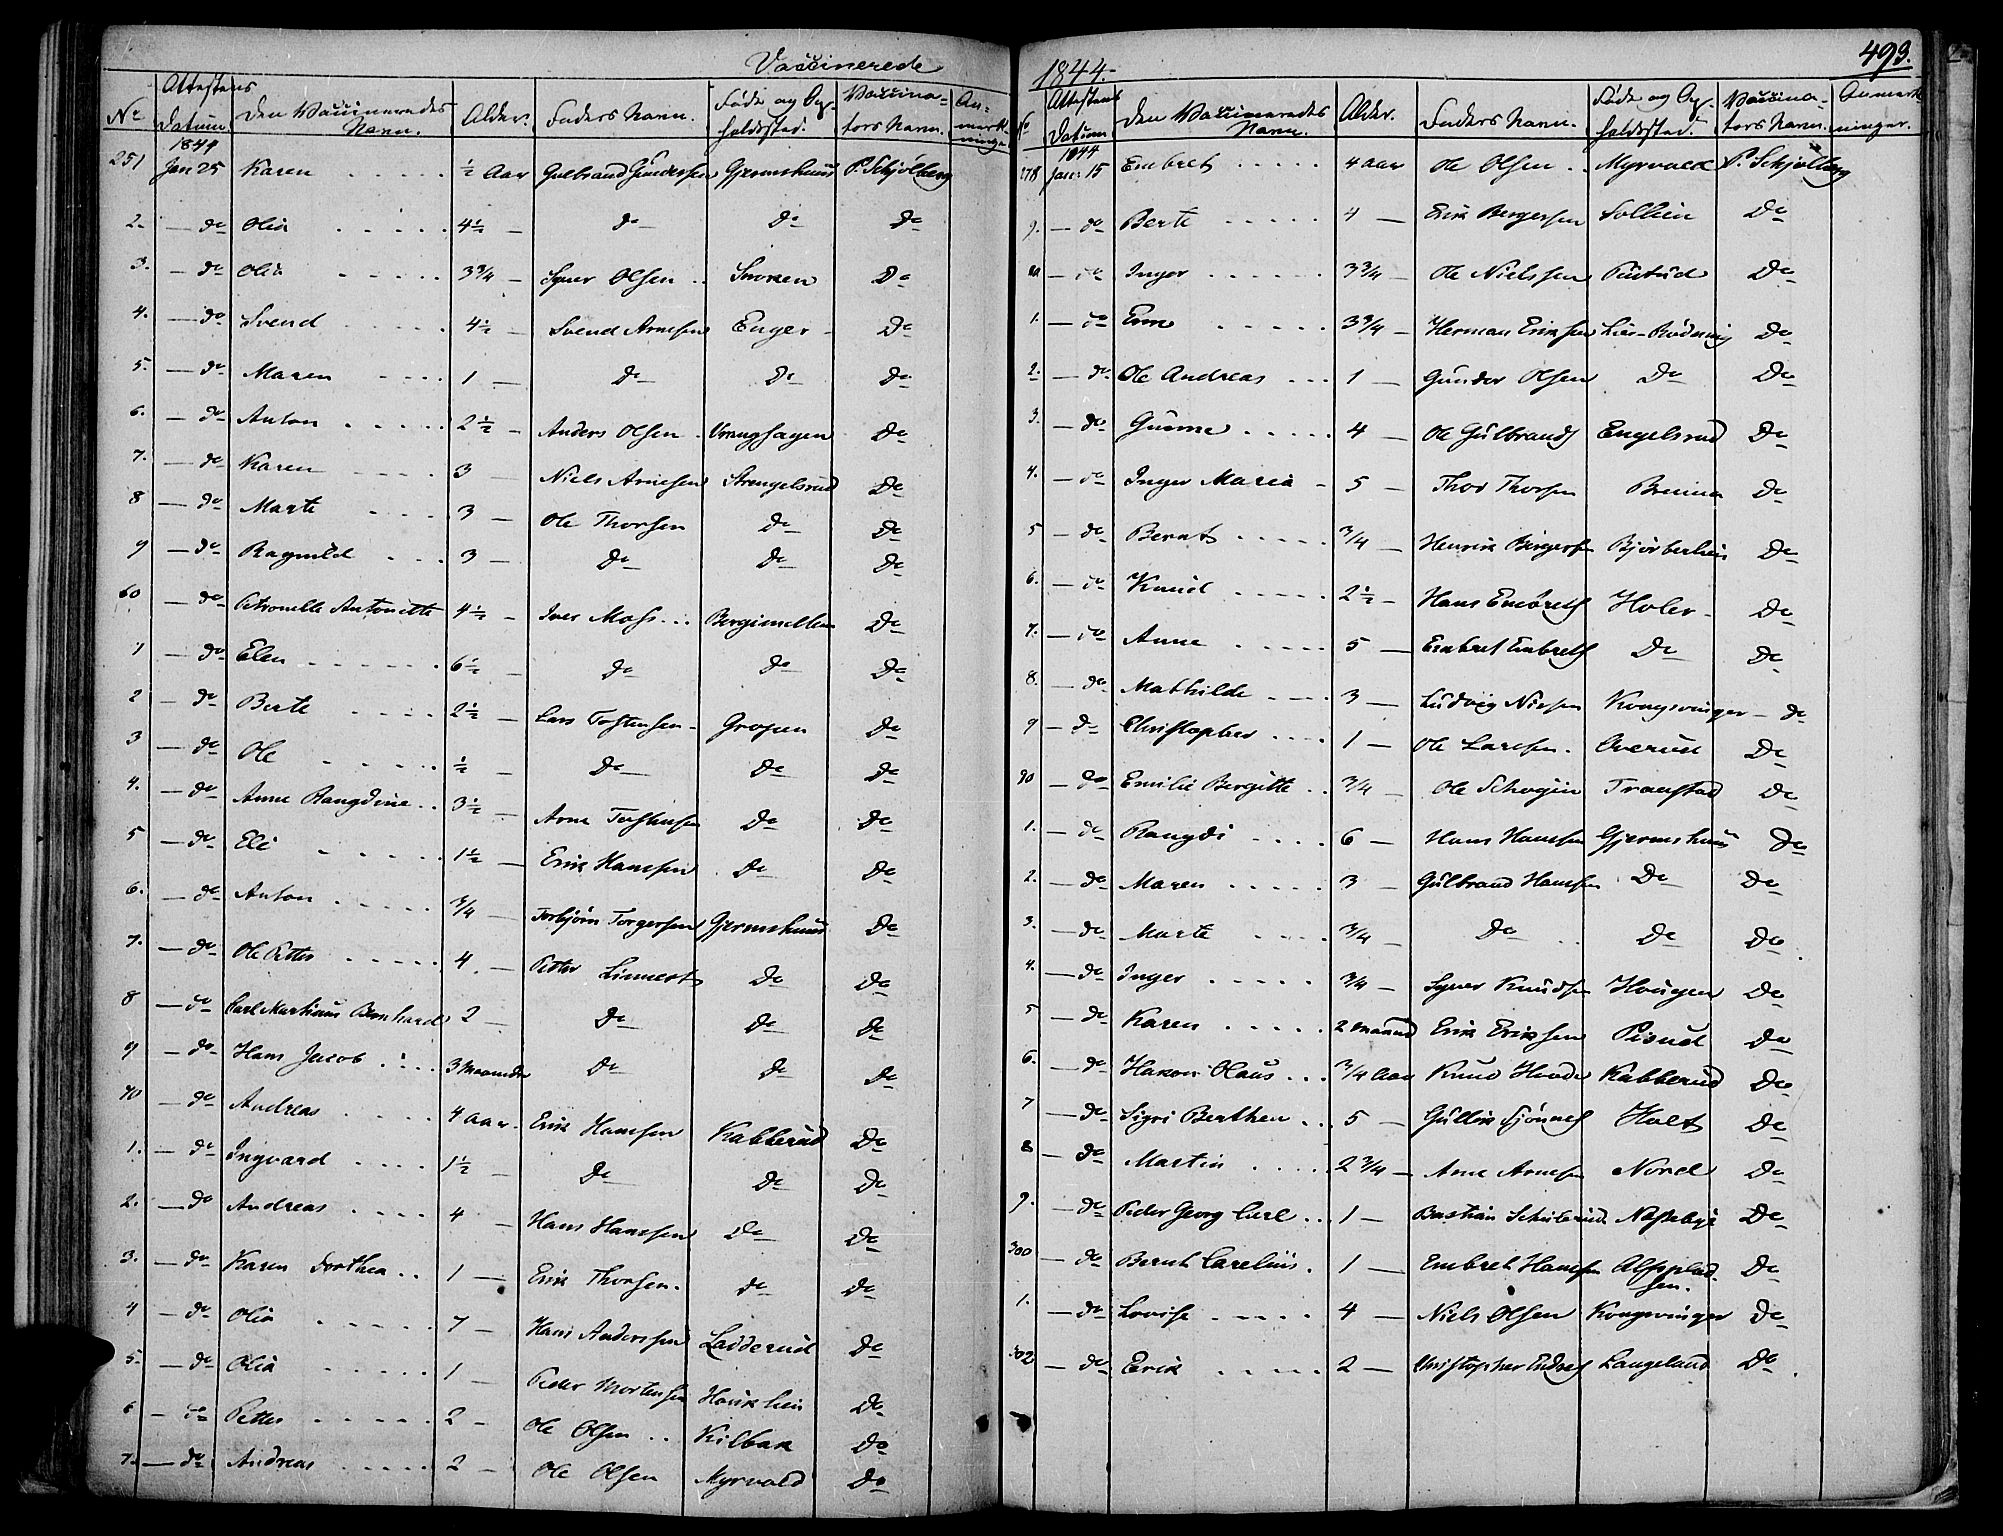 Vaccinerede
No Attestens Datum Den Vaccineredes Navn. Alder. Faders Navn. Føde og Op-holdssted. Vaccina-tors Navn. An-mærk-ninger
1844
251 Jan 25 Karen ½ Aar Gulbrand Gundersen Gjermshuus P. Schjølberg
2. — do Olia 4½ — do do Do
3. — do Olia 3¾ — Syver Olsen Snoren Do
4. — do Svend 4½ — Svend Arnesen Enger Do
5. — do Maren 1 — Do Do Do
6. — do Anton 2½ — Anders Olsen Vranghagen Do
7. — do Karen 3 — Niels Arnesen Strengelsrud Do
8 — do Marte 3 — Ole Thorsen Do Do
9 — do Ragnild 3 — Do Do Do
60 — do Petronelle Antonette 4½ — Iver Moss Bergimellem Do
1 — do Elen 6½ — Do do Do
2 — do Berte 2½ — Lars Torstensen Gropen Do
3 — do Ole ½ — Do Do Do
4. — do Anne Rangdine 3½ — Arne Torstensen Do Do
5 — do Eli 1½ — Erik Hansen Do Do
6. — do Anton ¾ — Torbjørn Torgersen Gjermshuus Do
7. — do Ole Petter 4 — Petter Linnert Do Do
8 — do Carl Marthinus Bernhard 2 — Do Do Do
9 — do Hans Jacob 3 Maaneder Do Do Do
70 — do Andreas 4 Aar. Erik Hansen Kabberud Do
1. — do Ingvard 1½ — Do Do Do
2. — do Andreas 4 — Hans Hansen Do Do
3. — do Karen Dorthea 1 — Erik Thorsen Do Do
4 — do Olia 7 — Hans Anderssen Ladderud Do
5. — do Olia 1 — Peder Mortensen Hauklien Do
6 — do Petter 2 — Ole Olsen Kilbak Do
7. — do Andreas 2 — Ole Olsen Myrvold Do
1844.
493.
No Attestens Datum Den Vaccineredes Navn. Alder. Faders Navn. Føde og Op-holdssted. Vaccina-tors Navn. Anmærk-ninger.
1844
278 Jan: 15 Embret 4 Aar Ole Olsen Myrvold P. Schjølberg
9. — do Berte 4 — Erik Bergersen Sollien Do
80 — do Inger 3¾ — Ole Nielssen Do
1. — do 3¾ — Herman Eriksen Lier-Rødning Do
2. — do Ole Andreas 1 — Gunder Olsen Do Do
3. — do Gunne 4 — Ole Gulbrands Engelsrud Do
4. — do Inger Maria 5 — Thor Thorsen Brenna Do
5 — do Bernt ¾ — Henrik Birgers Bjørberlien Do
6. — do Knud 2½ — Hans Embrets Holer Do
7. — do Anne 5 — Embret Embrets Do Do
8. — do Mathilde 3 — Ludvig Niesen Kongsvinger — do
9 — do Christopher 1 — Ole Larssen Overud Do
90 — do Emilie Bergitte ¾ — Ole Schogen Transtad Do
1. — do Rangdi 6 — Hans Hansen Gjermshuus Do
2. — do Maren 3 — Gulbrand Hansen Do Do
3. — do Marte ¾ — Do Do Do
4. — do Inger ¾ — Syver Knuds Hougen Do
5 — do Karen 2 Maaned Erik Eriksen Pisud Do
6. — do Hakon Olaus ¾ Aar Knud Kabberud Do
7 — do Sigri Berthea 5 — Gullik Holt Do
8 — do Martin 2¾ — Arne Arnes Nord Do
9. — do Peder Georg Carl 1 — Bastian Schulerud Næssebye Do
300 — do Bernt Carelius 1 — Embret Hansen Alfsplad-sen. Do
1. — do Lovise 4 — Niels Olsen Kongsvinger Do
302 — do Erik 2 — Christopher Endres Langeland Do